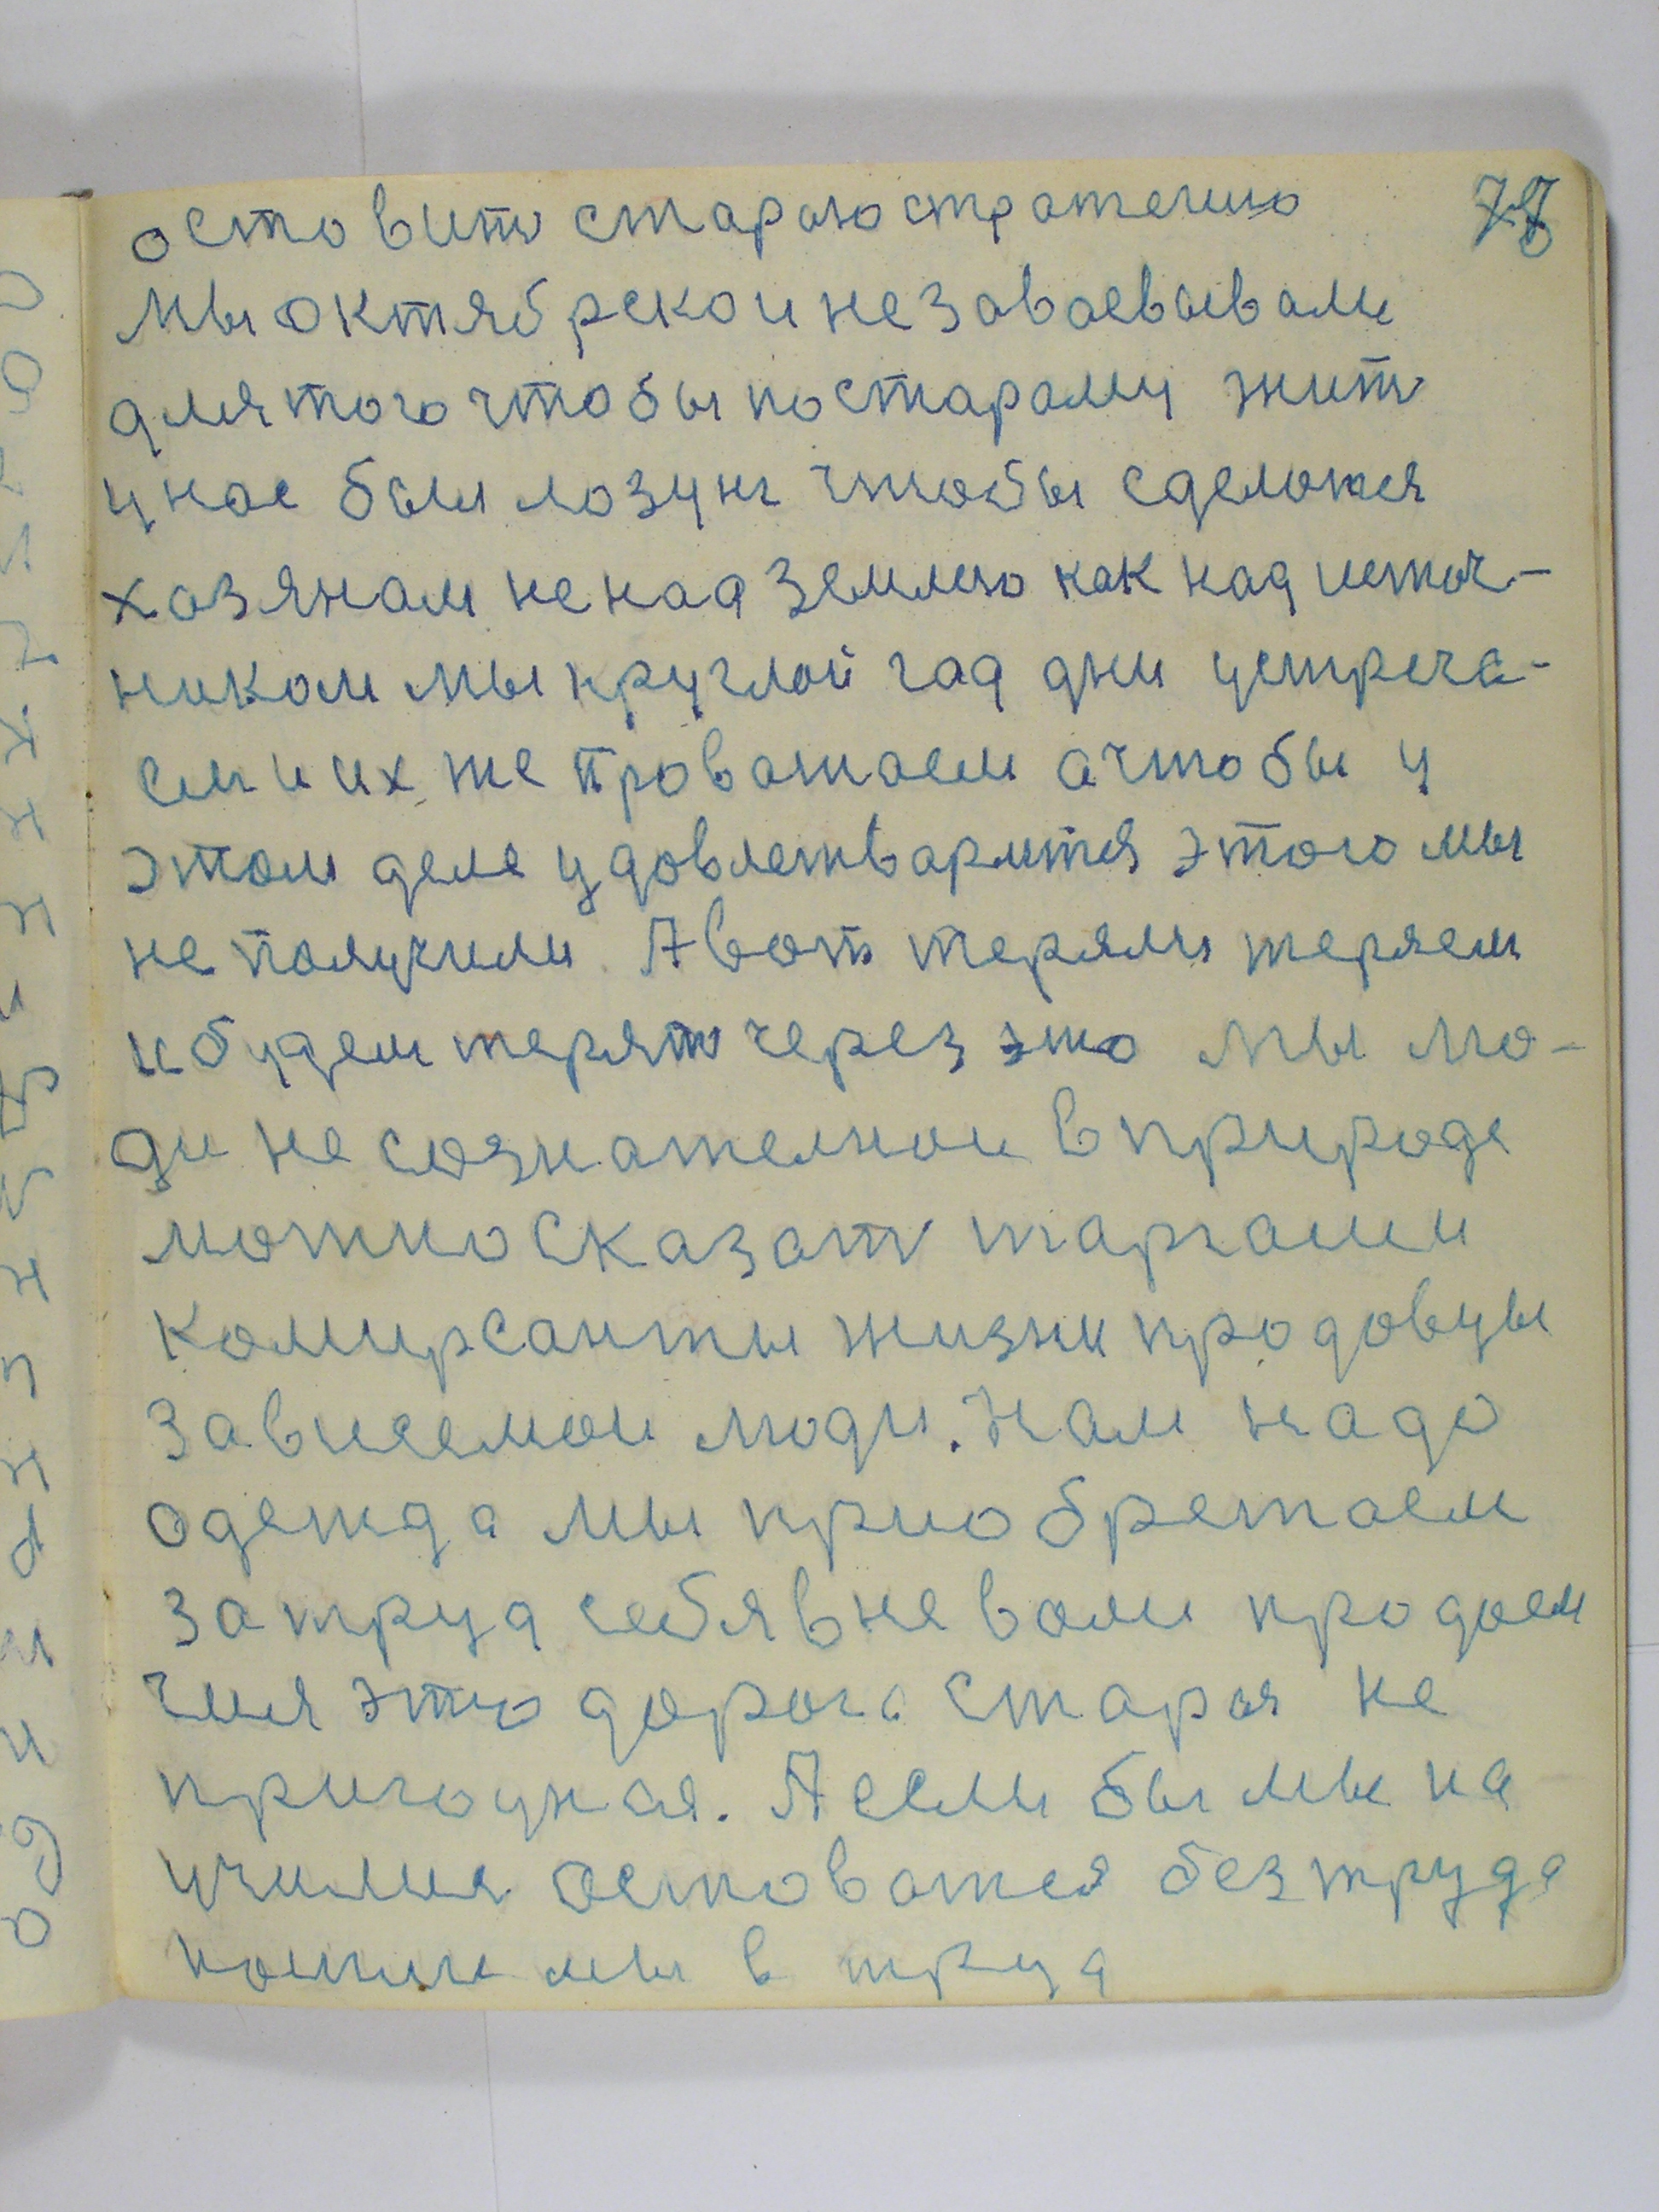 78
остовит староюстратегию
мы октябрскои незавоевывали
для того чтобы по старому жит
у нас был лозунг чтобы сделатся
хозяном не над землею как над источ-
ником мы круглой год дни устреча-
ем и их же проважаем а чтобы у
этом деле удовлетварится этого мы
не получили. А вот теряли теряем
и будем терят через это мы лю-
ди не сознателнои в природе
можно сказат таргаши
комирсанты жизни продовцы
зависемои люди. Нам надо
одежда мы приобретаем
за труд себя в неволи продаем
чия это дорога старая не
пригодная. А если бы мы на
училис остоватся без труда
пошли мы в труд